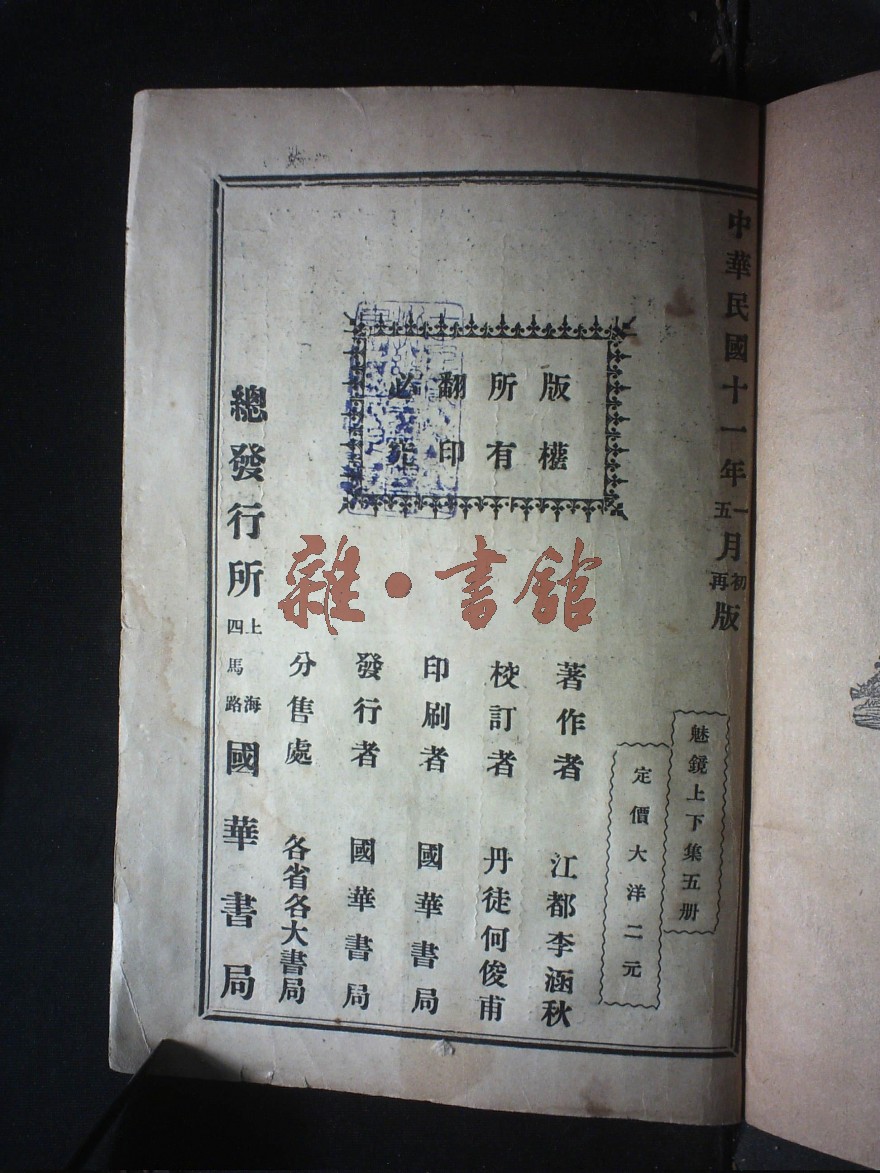 中華民國十一年一月初版
五月再版
魅鏡上下集五册
定價大洋二元
版權
所有
翻印
必究
著作者 江都李涵秋
校訂者 丹徒何俊甫
印刷者 國華書局
發行者 國華書局
分售處 各省各大書局
總發行所 上海四馬路 國華書局
雜·書館